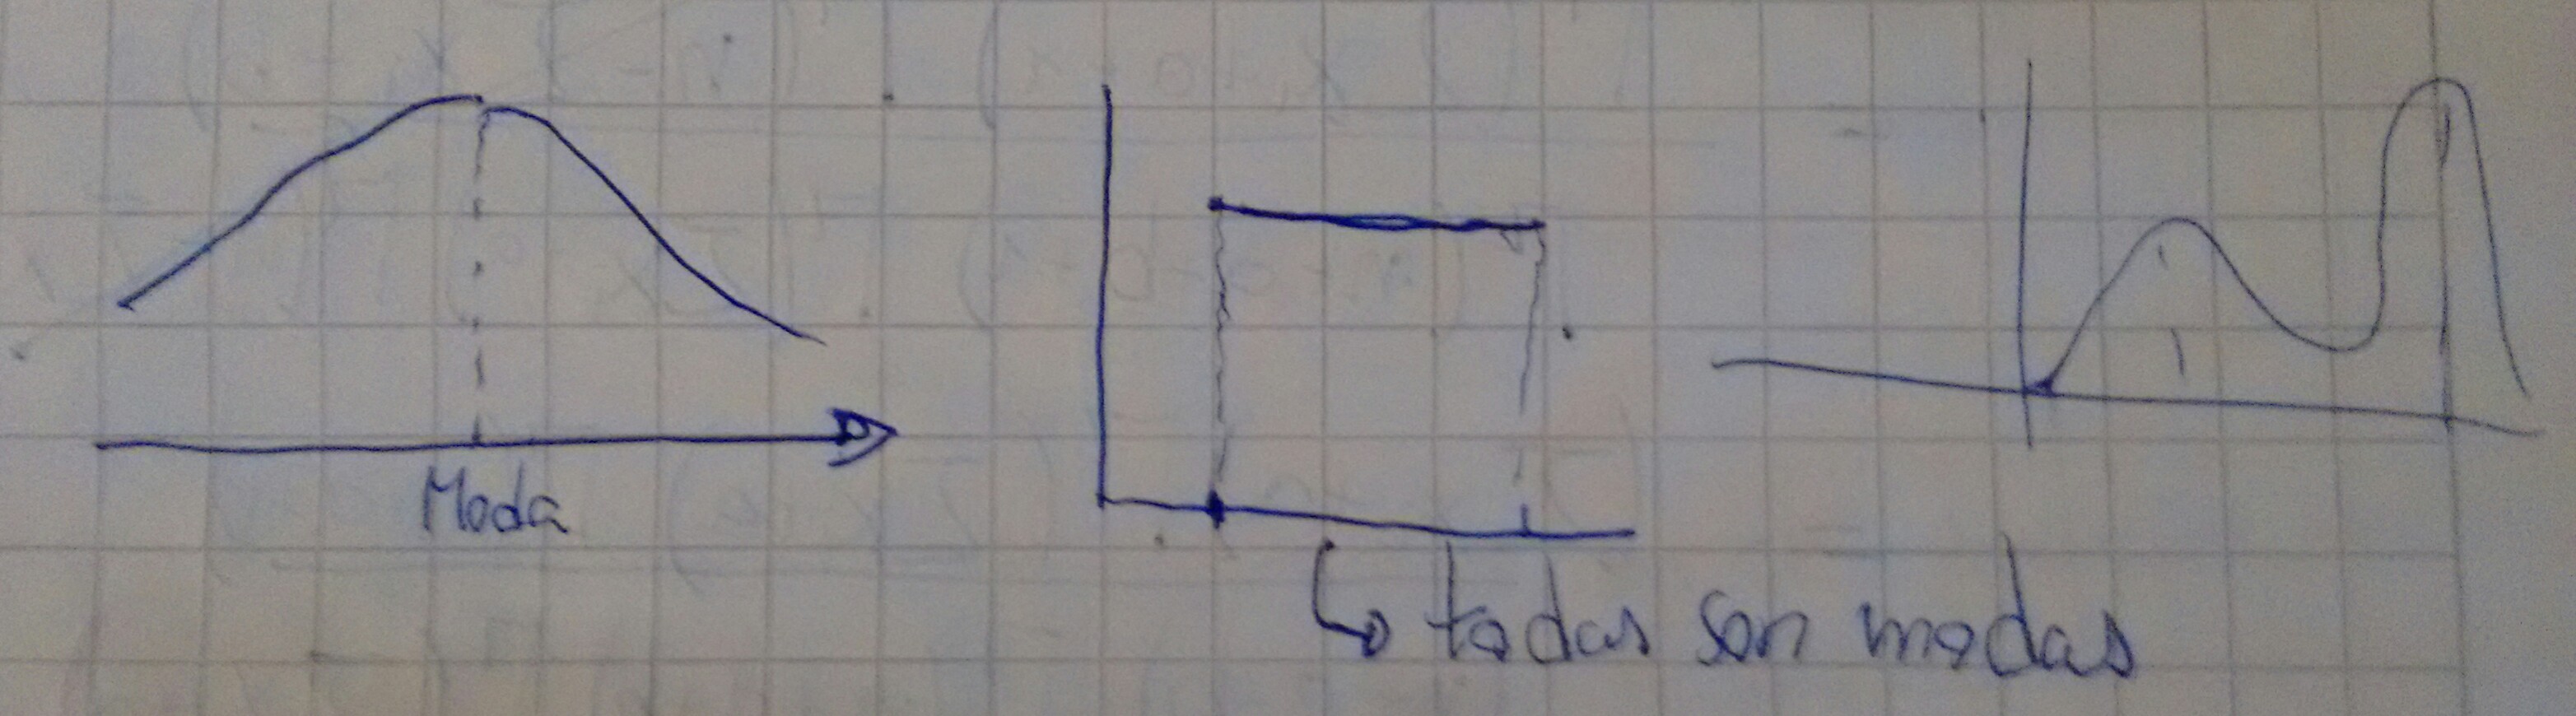 Moda
todas son modas